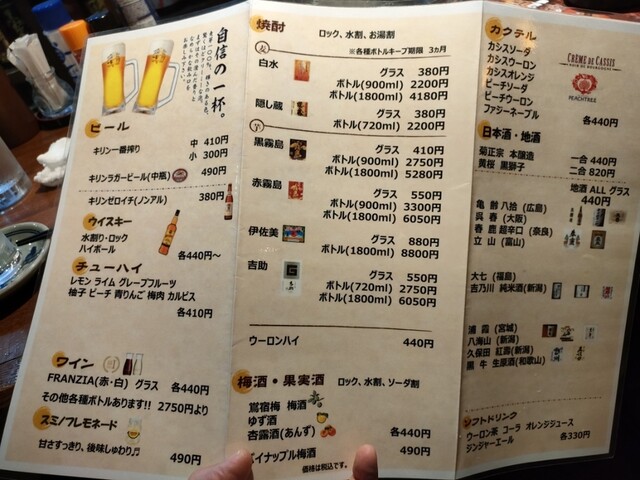 自信の一杯。
ビール
キリン一番搾り 中 410円
小 300円
キリンラガービール(中瓶) 490円
キリンゼロイチ(ノンアル) 380円
ウイスキー
水割り・ロック
ハイボール
各440円～
チューハイ
レモン ライム グレープフルーツ
柚子 ピーチ 青りんご 梅肉 カルピス
各410円
ワイン
FRANZIA(赤・白) グラス 各440円
その他各種ボトルあります!! 2750円より
スミノフレモネード
甘さすっきり、後味しゅわり♬
490円
焼酎 ロック、水割、お湯割
※各種ボトルキープ期限 3カ月
麦
白水 グラス 380円
ボトル(900ml) 2200円
ボトル(1800ml) 4180円
隠し蔵 グラス 380円
ボトル(720ml) 2200円
芋
黒霧島 グラス 410円
ボトル(900ml) 2750円
ボトル(1800ml) 5280円
赤霧島 グラス 550円
ボトル(900ml) 3300円
ボトル(1800ml) 6050円
伊佐美 グラス 880円
ボトル(1800ml) 8800円
吉助 グラス 550円
ボトル(720ml) 2750円
ボトル(1800ml) 6050円
ウーロンハイ 440円
梅酒・果実酒 ロック、水割、ソーダ割
鴬宿梅 梅酒
ゆず酒
杏露酒(あんず) 各440円
パイナップル梅酒 490円
価格は税込です。
カクテル
カシスソーダ
カシスウーロン
カシスオレンジ
ピーチソーダ
ピーチウーロン
ファジーネーブル
CRÈME DE CASSIS
PEACHTREE
各440円
日本酒・地酒
菊正宗 本醸造 一合 440円
黄桜 黒獅子 二合 820円
地酒 ALL グラス
440円
亀齢 八拾 (広島)
呉春 (大阪)
春鹿 超辛口 (奈良)
立山 (富山)
大七 (福島)
吉乃川 純米酒(新潟)
浦霞 (宮城)
八海山 (新潟)
久保田 紅壽(新潟)
黒牛 生原酒(和歌山)
ソフトドリンク
ウーロン茶 コーラ オレンジジュース
ジンジャーエール 各330円